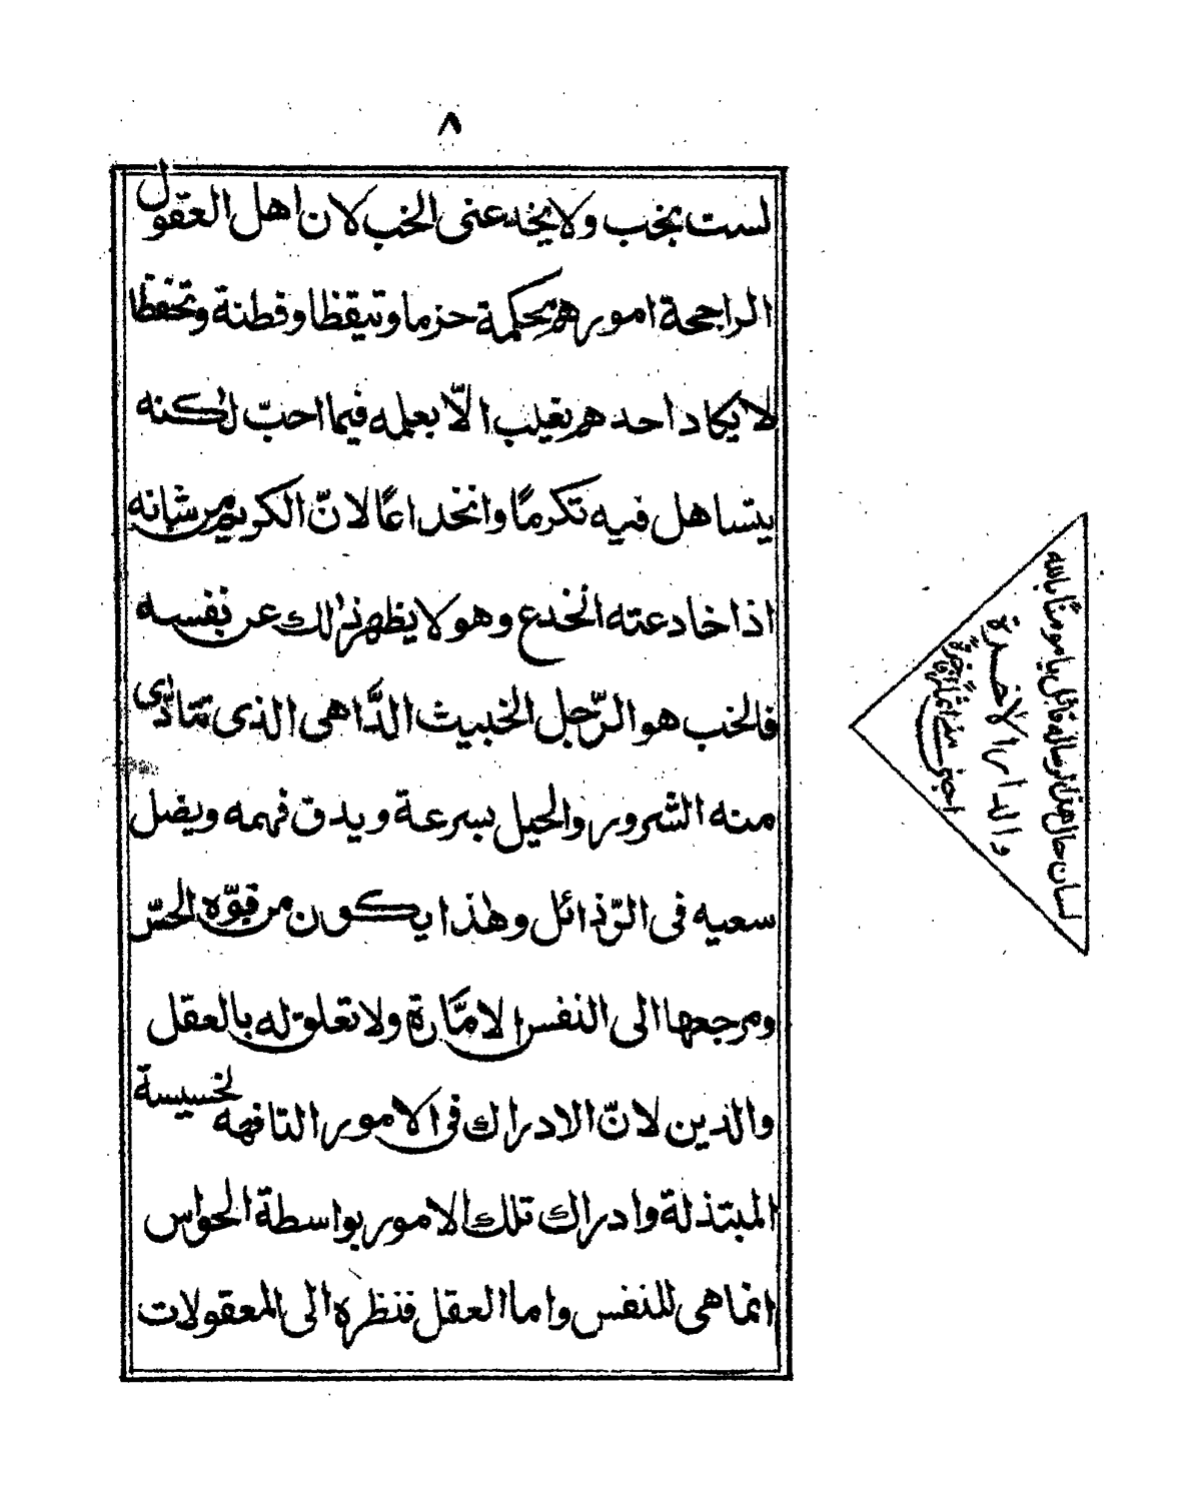 ٨
لست بخب ولا يخدعنى الخب لان اهل العقول
الراجحة امورهم محكمة حزما وتيقظا وفطنة وتحفظا
لا يكاد احدهم يغلب الّا بعلمه فيما احبّ لكنه
يتساهل فيه تكرمًا وانخداعًا لانّ الكريم من شانه
اذا خادعته انخدع وهو لا يظهر ذلك عن نفسه
فالخب هو الرّجل الخبيث الدَّاهى الذى تتادّى
منه الشرور والحيل بسرعة ويدق فهمه ويضل
سعيه فى الرّذائل وهذا يكون من قوّة الحسّ
ومرجعها الى النفس الامَّارة ولا تعلق له بالعقل
والدين لانّ الادراك فى الامور التافهه لخسيسة
المبتذلة وادراك تلك الامور بواسطة الحواس
انما هى للنفس واما العقل فنظره الى المعقولات
لسان حال هذه الرسالة قائل يا مومنًا بالله
والدار الاخرة
اجنى